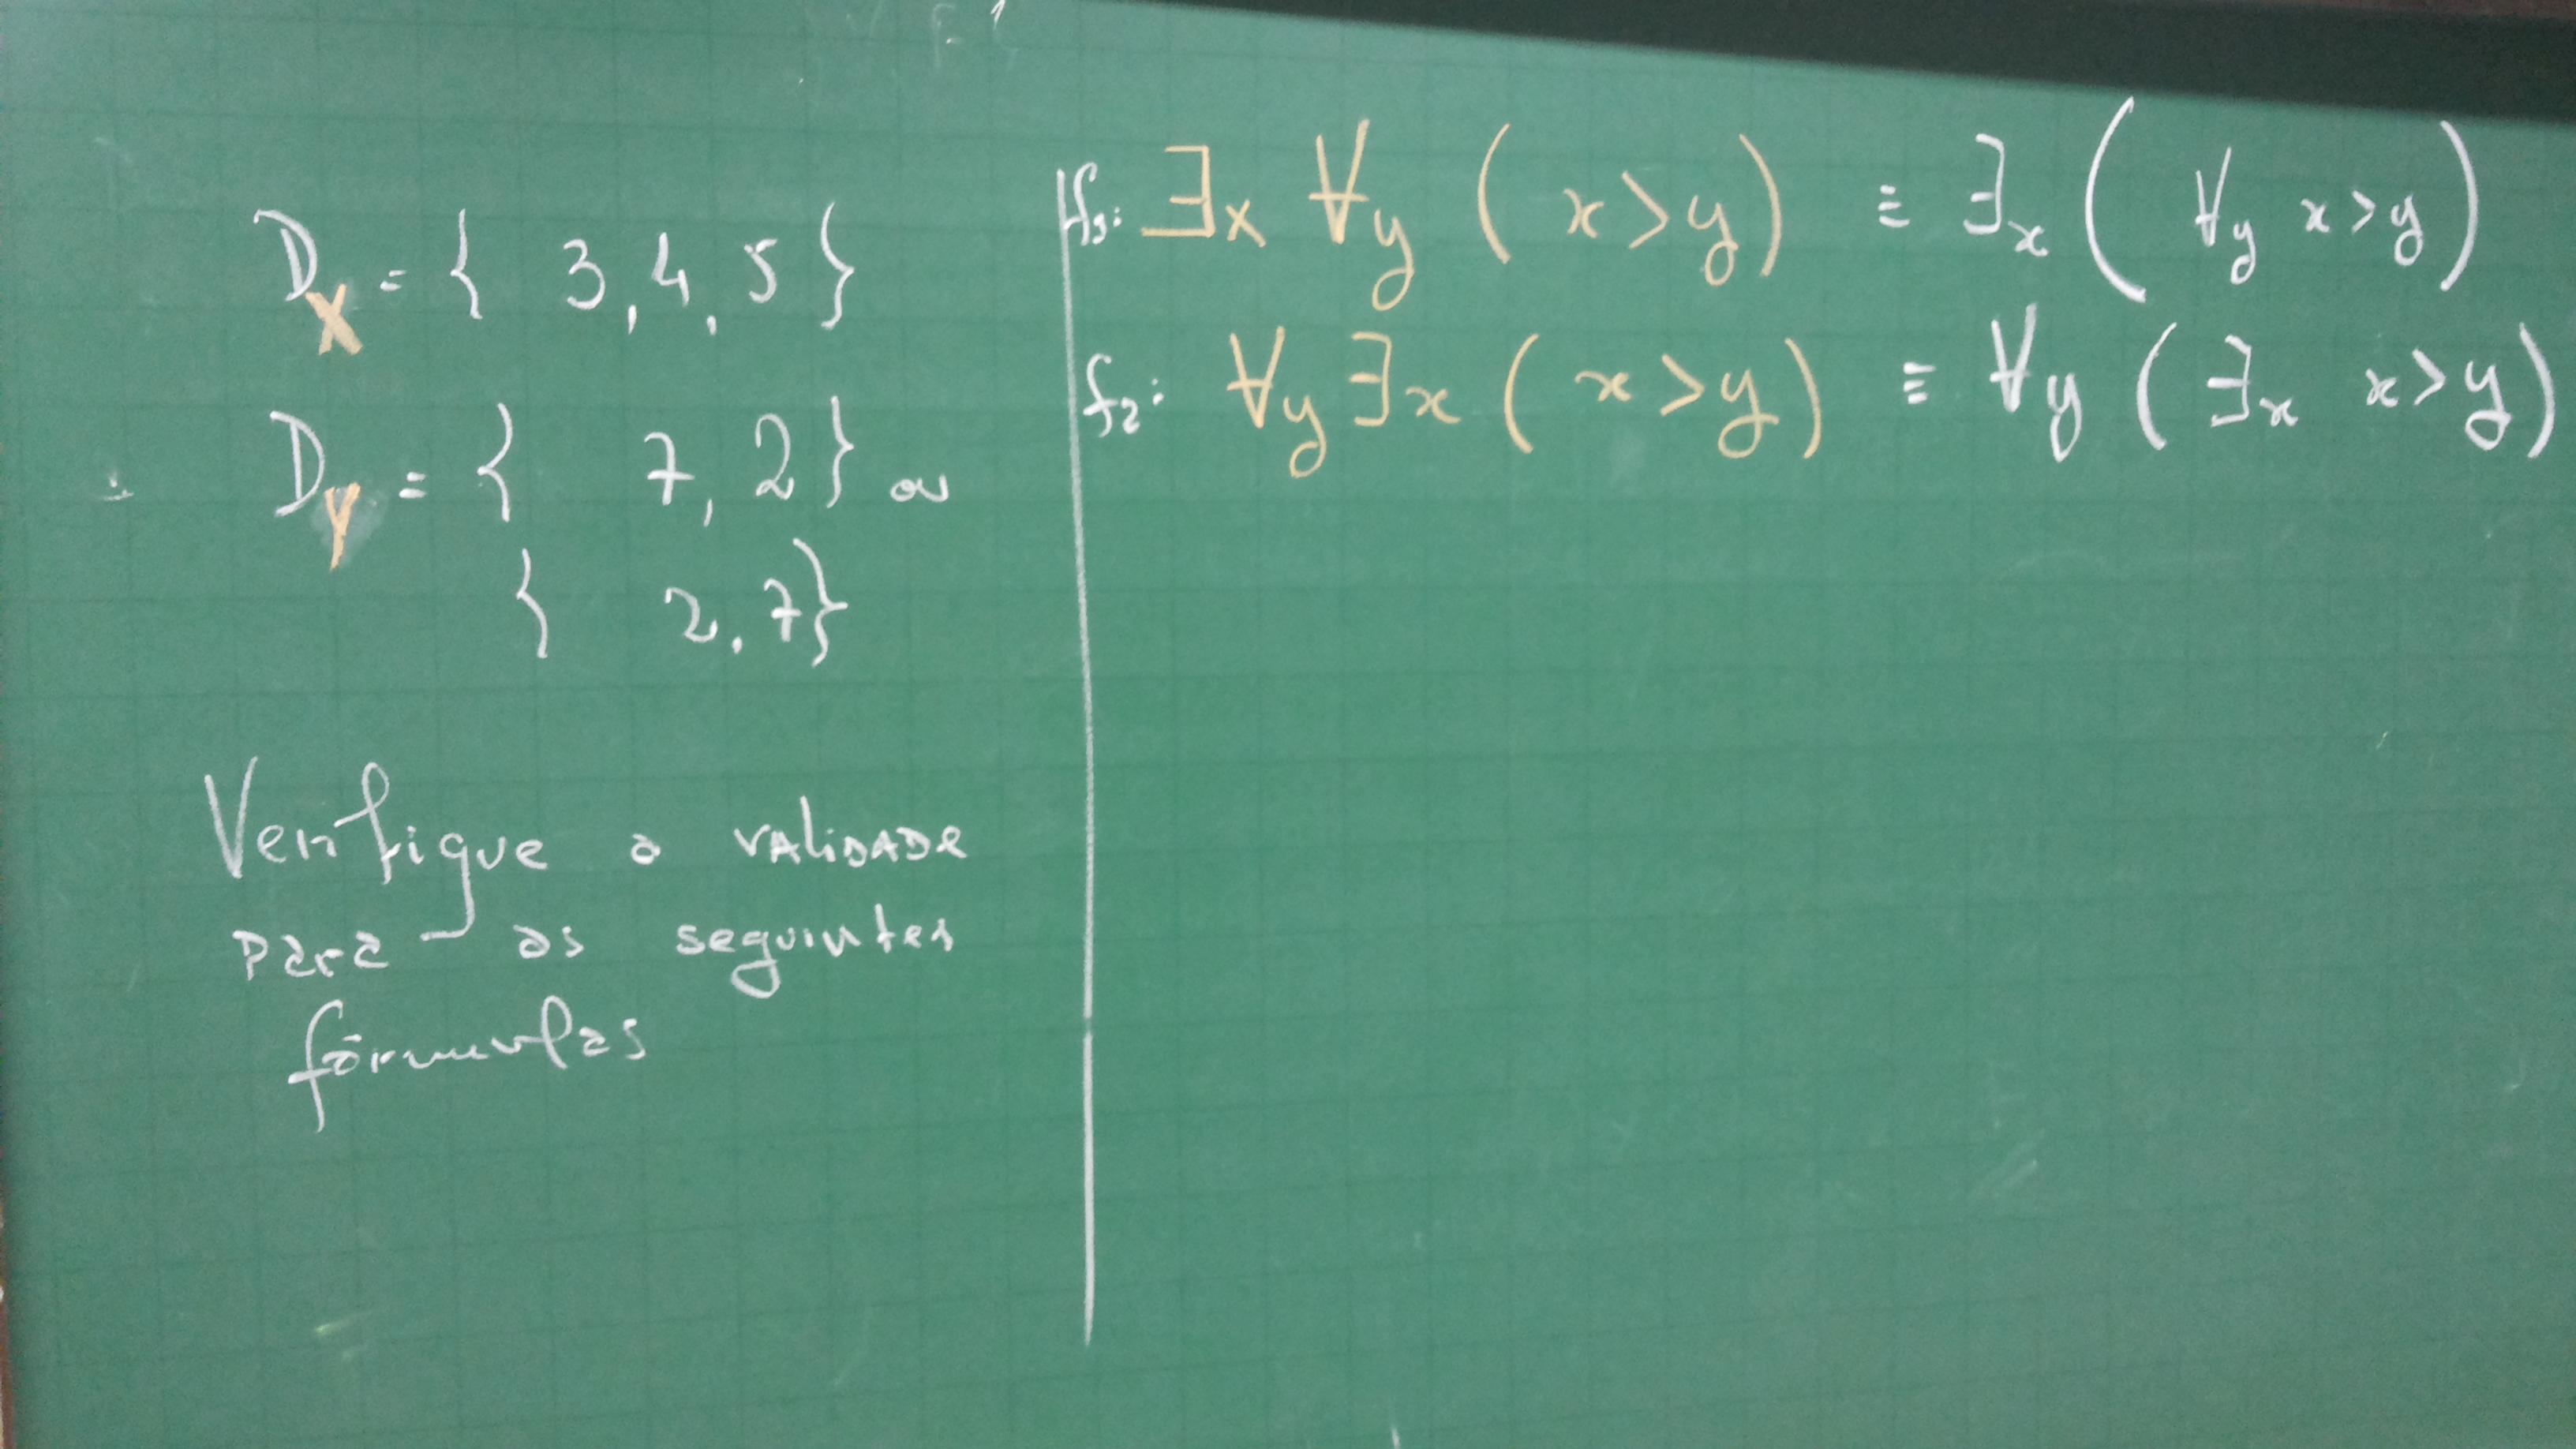 D_X = { 3, 4, 5 }
D_Y = { 7, 2 } ou
{ 2, 7 }
Verifique a validade
para as seguintes
fórmulas
f₁: ∃x ∀y ( x > y ) ≡ ∃x ( ∀y x > y )
f₂: ∀y ∃x ( x > y ) ≡ ∀y ( ∃x x > y )